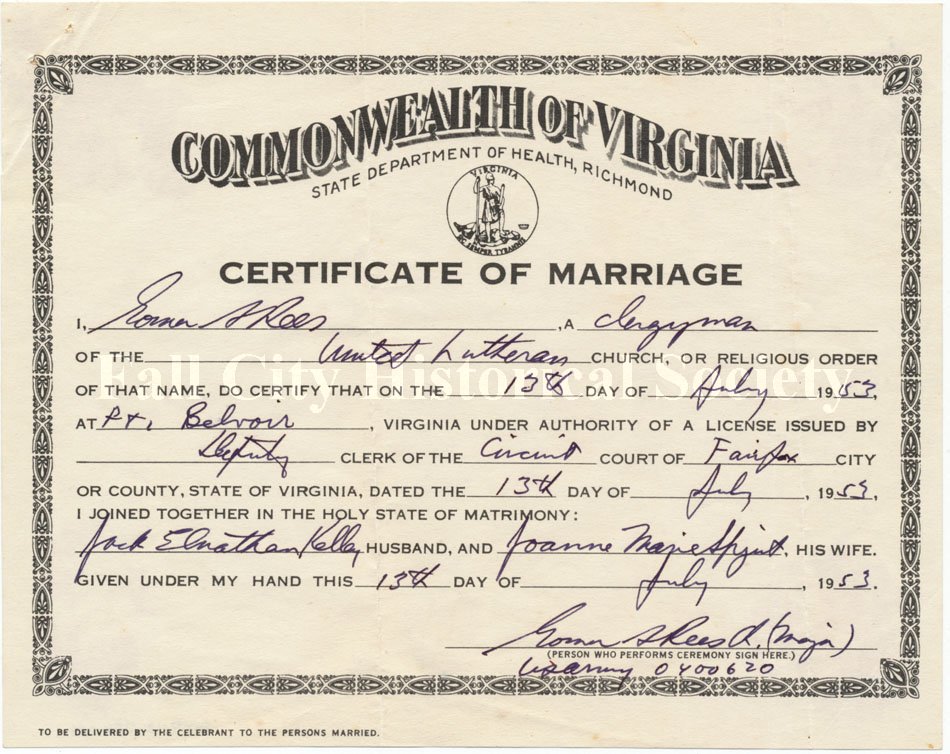 COMMONWEALTH OF VIRGINIA
STATE DEPARTMENT OF HEALTH, RICHMOND
VIRGINIA
SIC SEMPER TYRANNIS
CERTIFICATE OF MARRIAGE
I, Gomer S Rees, A Clergyman
OF THE United Lutheran CHURCH, OR RELIGIOUS ORDER
Fall City Historical Society
OF THAT NAME, DO CERTIFY THAT ON THE 13th DAY OF July 1953,
AT Ft. Belvoir, VIRGINIA UNDER AUTHORITY OF A LICENSE ISSUED BY
Deputy CLERK OF THE Circuit COURT OF Fairfax CITY
OR COUNTY, STATE OF VIRGINIA, DATED THE 13th DAY OF July, 1953,
I JOINED TOGETHER IN THE HOLY STATE OF MATRIMONY:
Jack Elnathan Kelley, HUSBAND, AND Joanne Marie Spigut, HIS WIFE.
GIVEN UNDER MY HAND THIS 13th DAY OF July, 1953.
Gomer S Rees (Major)
(PERSON WHO PERFORMS CEREMONY SIGN HERE.)
US Army 0400620
TO BE DELIVERED BY THE CELEBRANT TO THE PERSONS MARRIED.